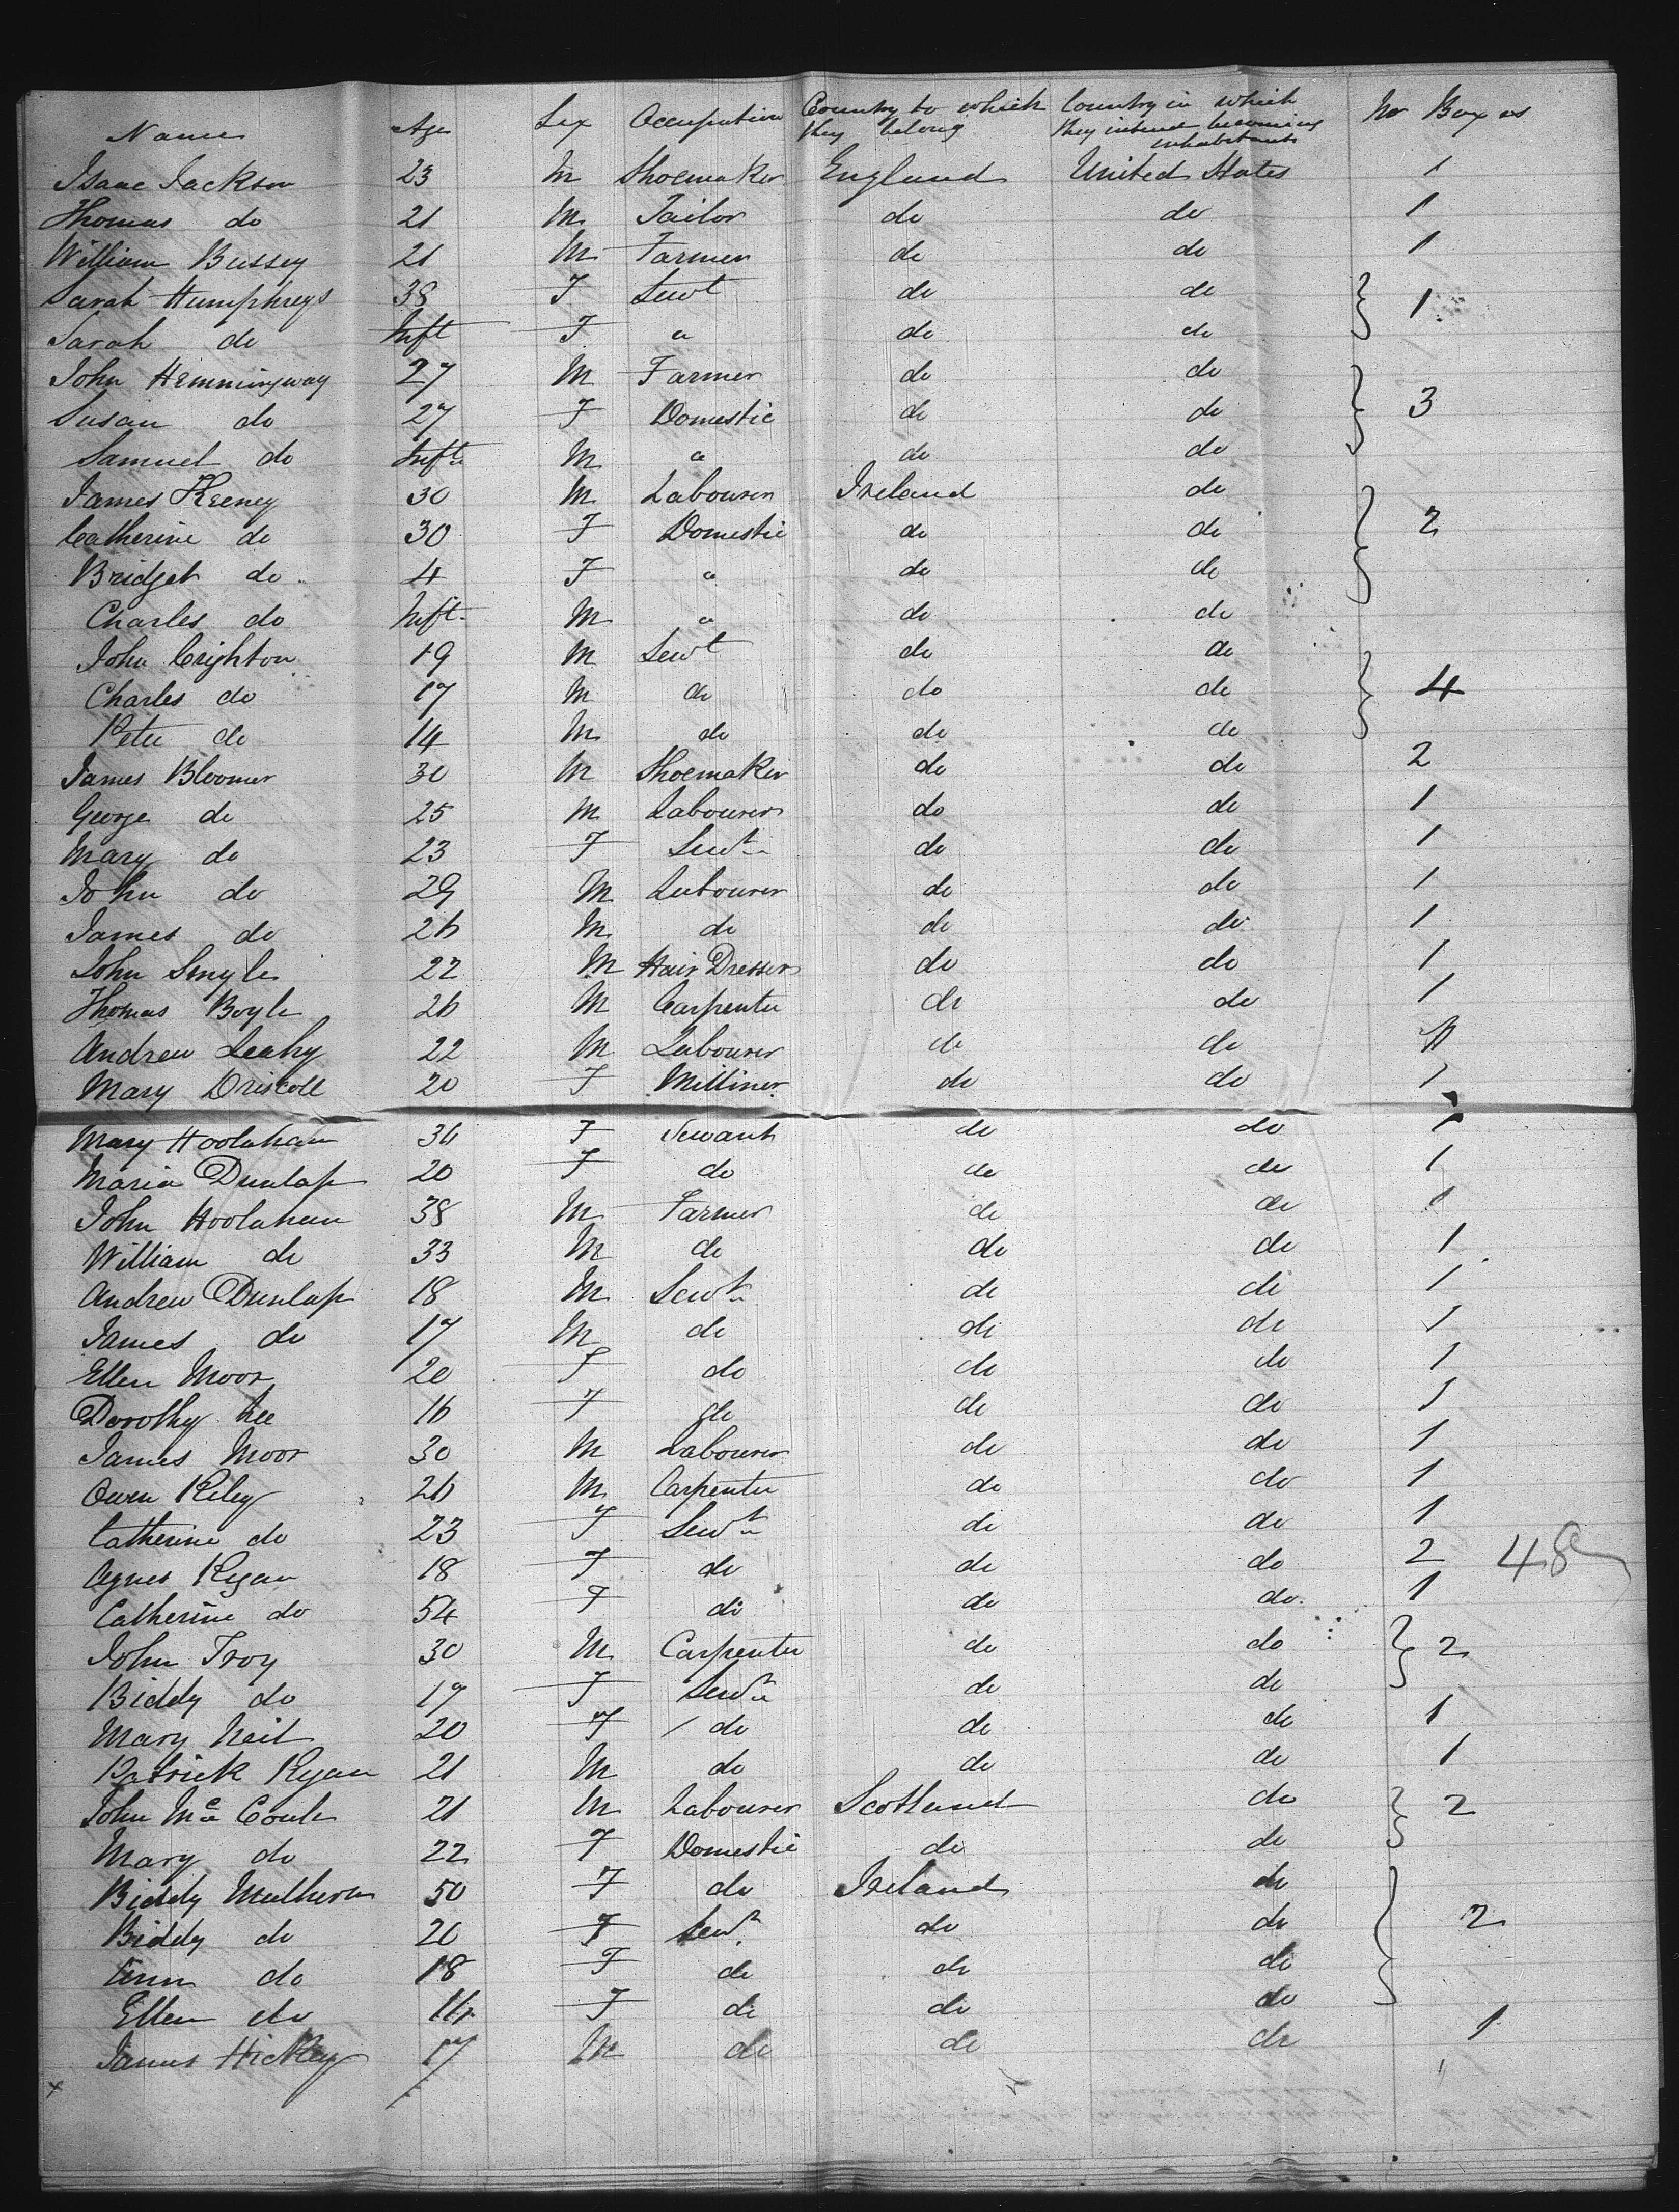 Name Age Sex Occupation Country to which they belong Country in which they intend becoming inhabitants No Boxes
Isaac Jackson 23 M Shoemaker England United States 1
Thomas do 21 M Tailor do do 1
William Bussey 21 M Farmer do do 1
Sarah Humphreys 38 F Servt do do } 1
Sarah do Inft F " do do
John Hemmingway 27 M Farmer do do } 3
Susan do 27 F Domestic do do
Samuel do Inft M " do do
James Keeney 30 M Labourer Ireland do } 2
Catherine do 30 F Domestic do do
Bridget do 4 F " do do
Charles do Inft M " do do
John Crighton 19 M Servt do do } 4
Charles do 17 M do do do
Peter do 14 M do do do
James Bloomer 30 M Shoemaker do do 2
George do 25 M Labourer do do 1
Mary do 23 F Servt do do 1
John do 29 M Labourer do do 1
James do 26 M do do do 1
John Smyle 22 M Hair Dresser do do 1
Thomas Boyle 26 M Carpenter do do 1
Andrew Leahy 22 M Labourer do do
Mary Driscoll 20 F Milliner do do 1
Mary Hoolahan 36 F Servant do do 1
Maria Dunlap 20 F do do do 1
John Hoolahan 38 M Farmer do do 1
William do 33 M do do do 1
Andrew Dunlap 18 M Servt do do 1
James do 17 M do do do 1
Ellen Moor 20 F do do do 1
Dorothy Lee 16 F do do do 1
James Moor 30 M Labourer do do 1
Owen Riley 26 M Carpenter do do 1
Catherine do 23 F Servt do do 1
Agnes Ryan 18 F do do do 2 48
Catherine do 54 F do do do 1
John Troy 30 M Carpenter do do } 2
Biddy do 17 F Servt do do
Mary Neil 20 F do do do 1
Patrick Ryan 21 M do do do 1
John Mc Coule 21 M Labourer Scotland do } 2
Mary do 22 F Domestic do do
Biddy Mulhern 50 F do Ireland do } 2
Biddy do 20 F Servt do do
Ann do 18 F do do do
Ellen do 16 F do do do
James Hickey 17 M do do do 1